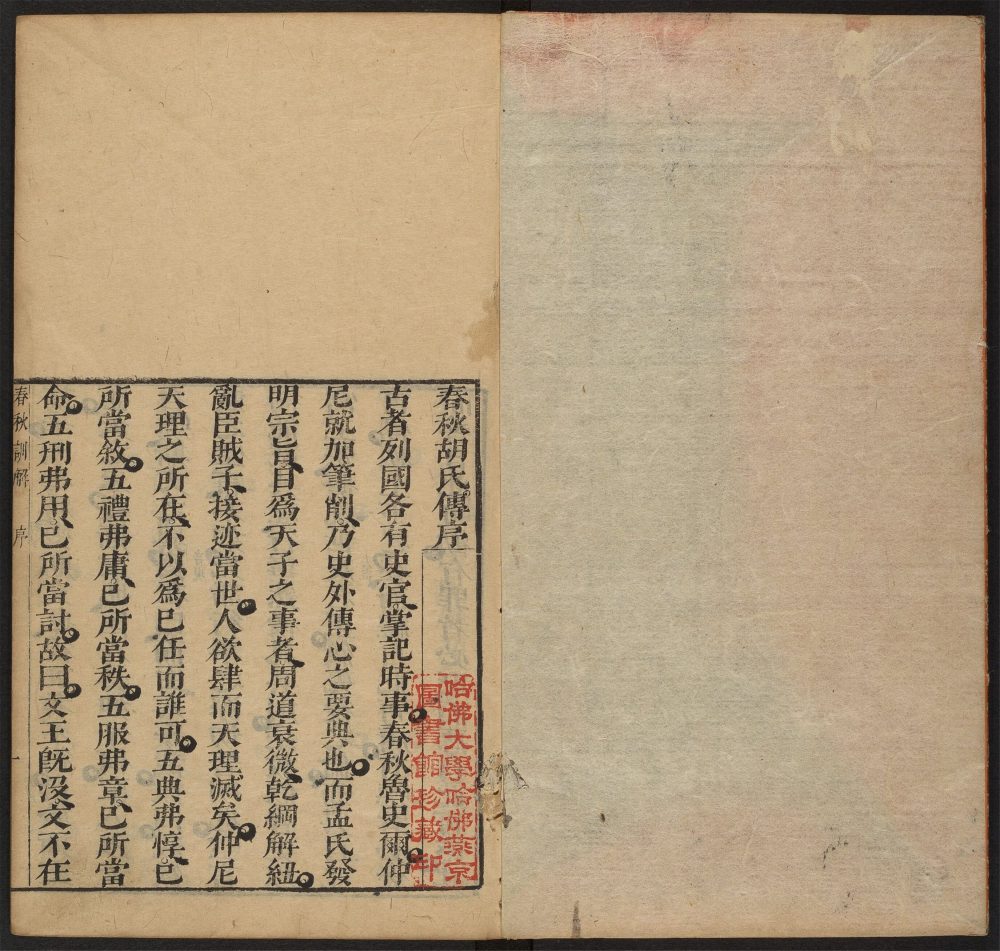 春秋胡氏傳序
古者列國各有史官掌記時事春秋魯史爾仲
尼就加筆削乃史外傳心之要典也而孟氏發
明宗旨目爲天子之事者周道衰微乾綱解紐
亂臣賊子接迹當世人欲肆而天理滅矣仲尼
天理之所在不以爲已任而誰可五典弗惇已
所當敘五禮弗庸已所當秩五服弗章已所當
命五刑弗用已所當討故曰文王旣沒文不在
春秋訓解 序 一
哈佛大學哈佛燕京
圖書館珍藏印